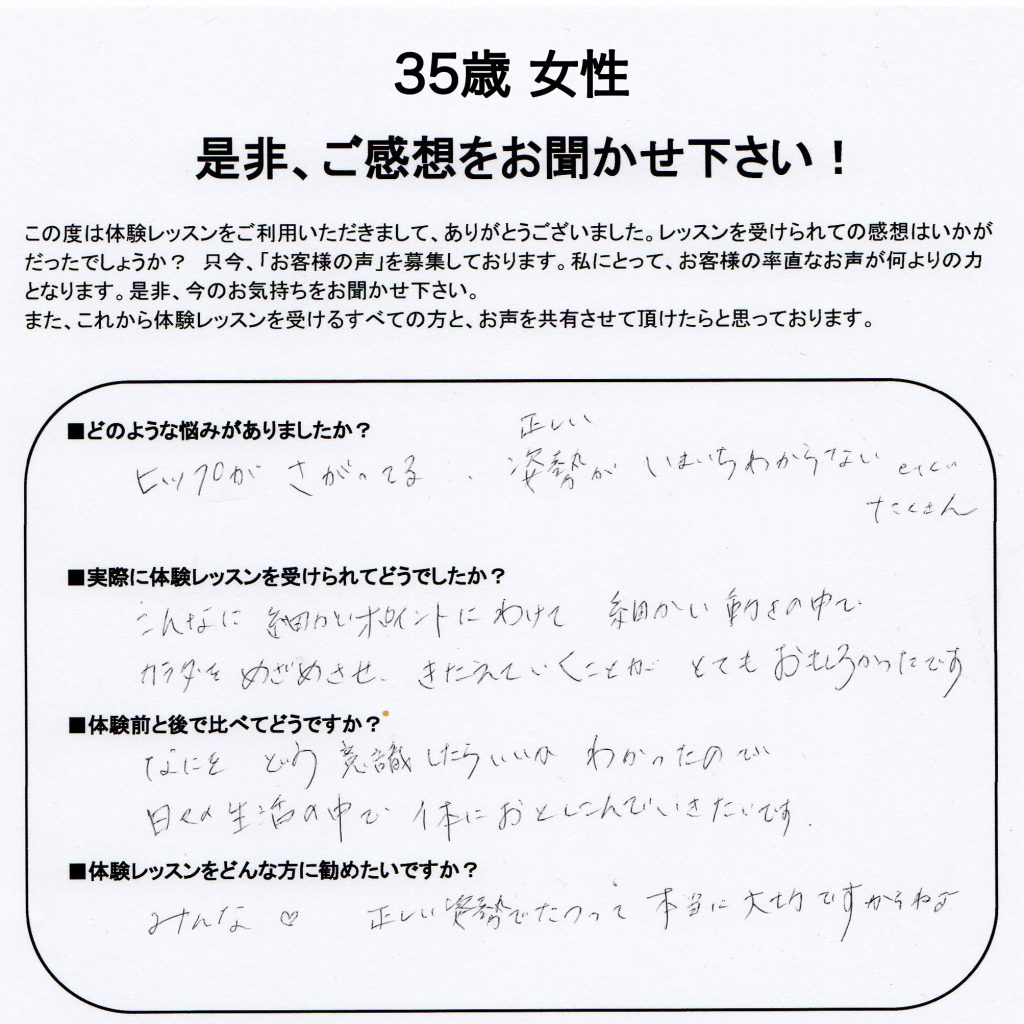 35歳 女性
是非、ご感想をお聞かせ下さい！
この度は体験レッスンをご利用いただきまして、ありがとうございました。レッスンを受けられての感想はいかが
だったでしょうか？　只今、「お客様の声」を募集しております。私にとって、お客様の率直なお声が何よりの力
となります。是非、今のお気持ちをお聞かせ下さい。
また、これから体験レッスンを受けるすべての方と、お声を共有させて頂けたらと思っております。
■どのような悩みがありましたか？
ヒップが さがってる、正しい姿勢が いまいちわからない etc...
たくさん
■実際に体験レッスンを受けられてどうでしたか？
こんなに 細かいポイントにわけて 細かい動きの中で
カラダを めざめさせ、きたえていくことが とても おもしろかったです
■体験前と後で比べてどうですか？
なにを どう 意識したらいいか わかったので
日々の生活の中で 体におとしこんでいきたいです.
■体験レッスンをどんな方に勧めたいですか？
みんな♡ 正しい姿勢でたつって 本当に大切ですからね